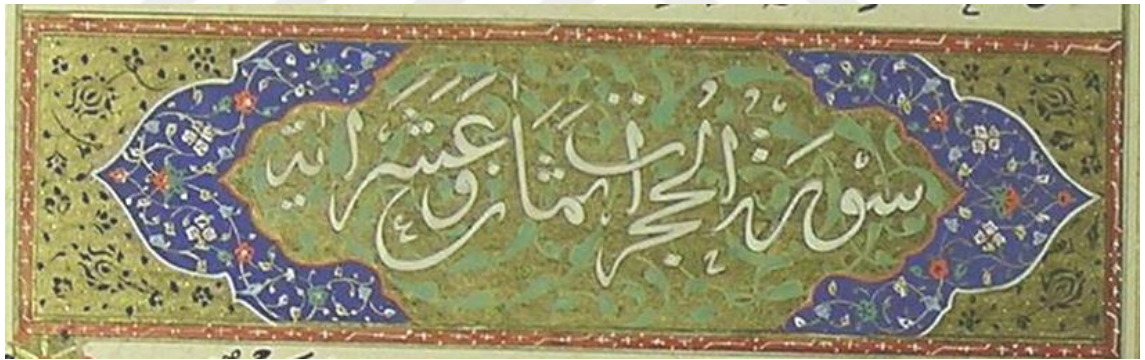 سورة الحجرات ثمان وعشر اية